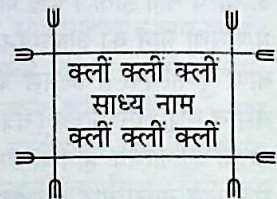 क्लीं क्लीं क्लीं
साध्य नाम
क्लीं क्लीं क्लीं